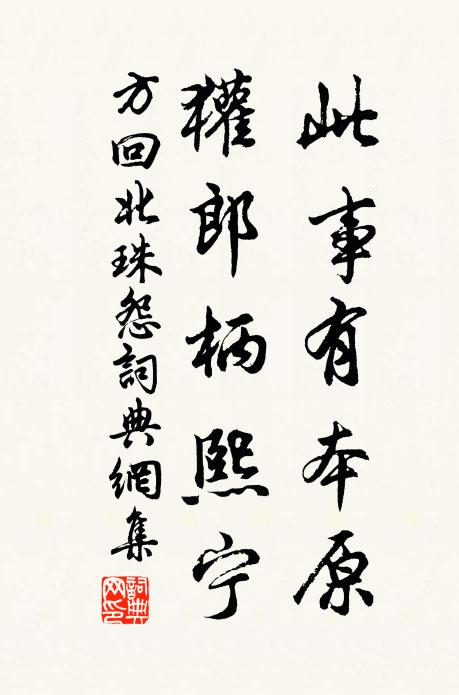 此事有本原
獾郎柄熙宁
方回北珠怨詞典網集
詞典網印